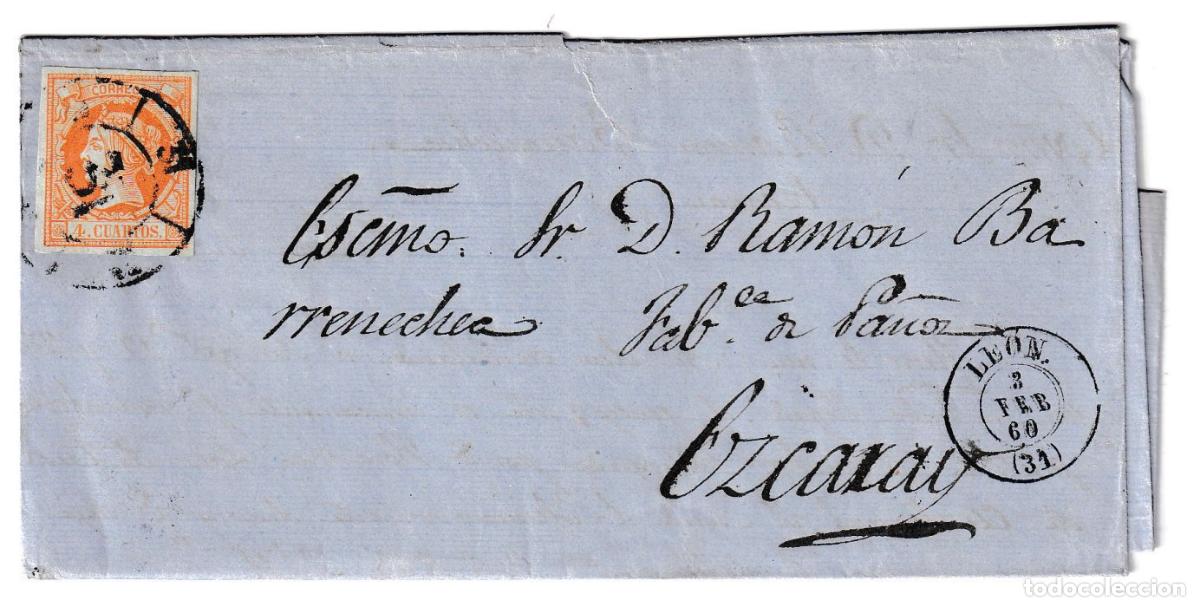 CORREOS
4. CUARTOS.
Escmo. Sr. D. Ramón Ba
rrenechea Fab.ca de Paños
Ezcaray
LEON.
3
FEB
60
(31)
todocoleccion